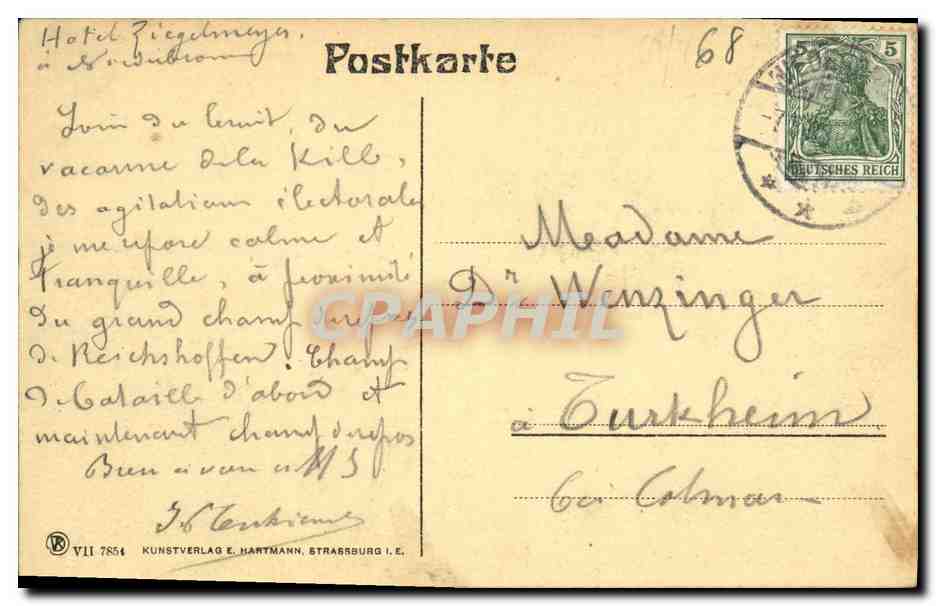 Hotel Ziegelmeyer.
à Niederbronn
Postkarte
68
5 5
DEUTSCHES REICH
Loin du bruit, du
vacarme de la Kilb,
des agitations électorales
je me repose calme et
tranquille, à proximité
du grand champ de repos
de Reichshoffen. Champ
de bataille d'abord et
maintenant champ de repos
Bien à vous
Madame
Dr Wenzinger
à Turkheim
bei Colmar
CPAPHIL
VII 7854 KUNSTVERLAG E. HARTMANN, STRASSBURG I. E.